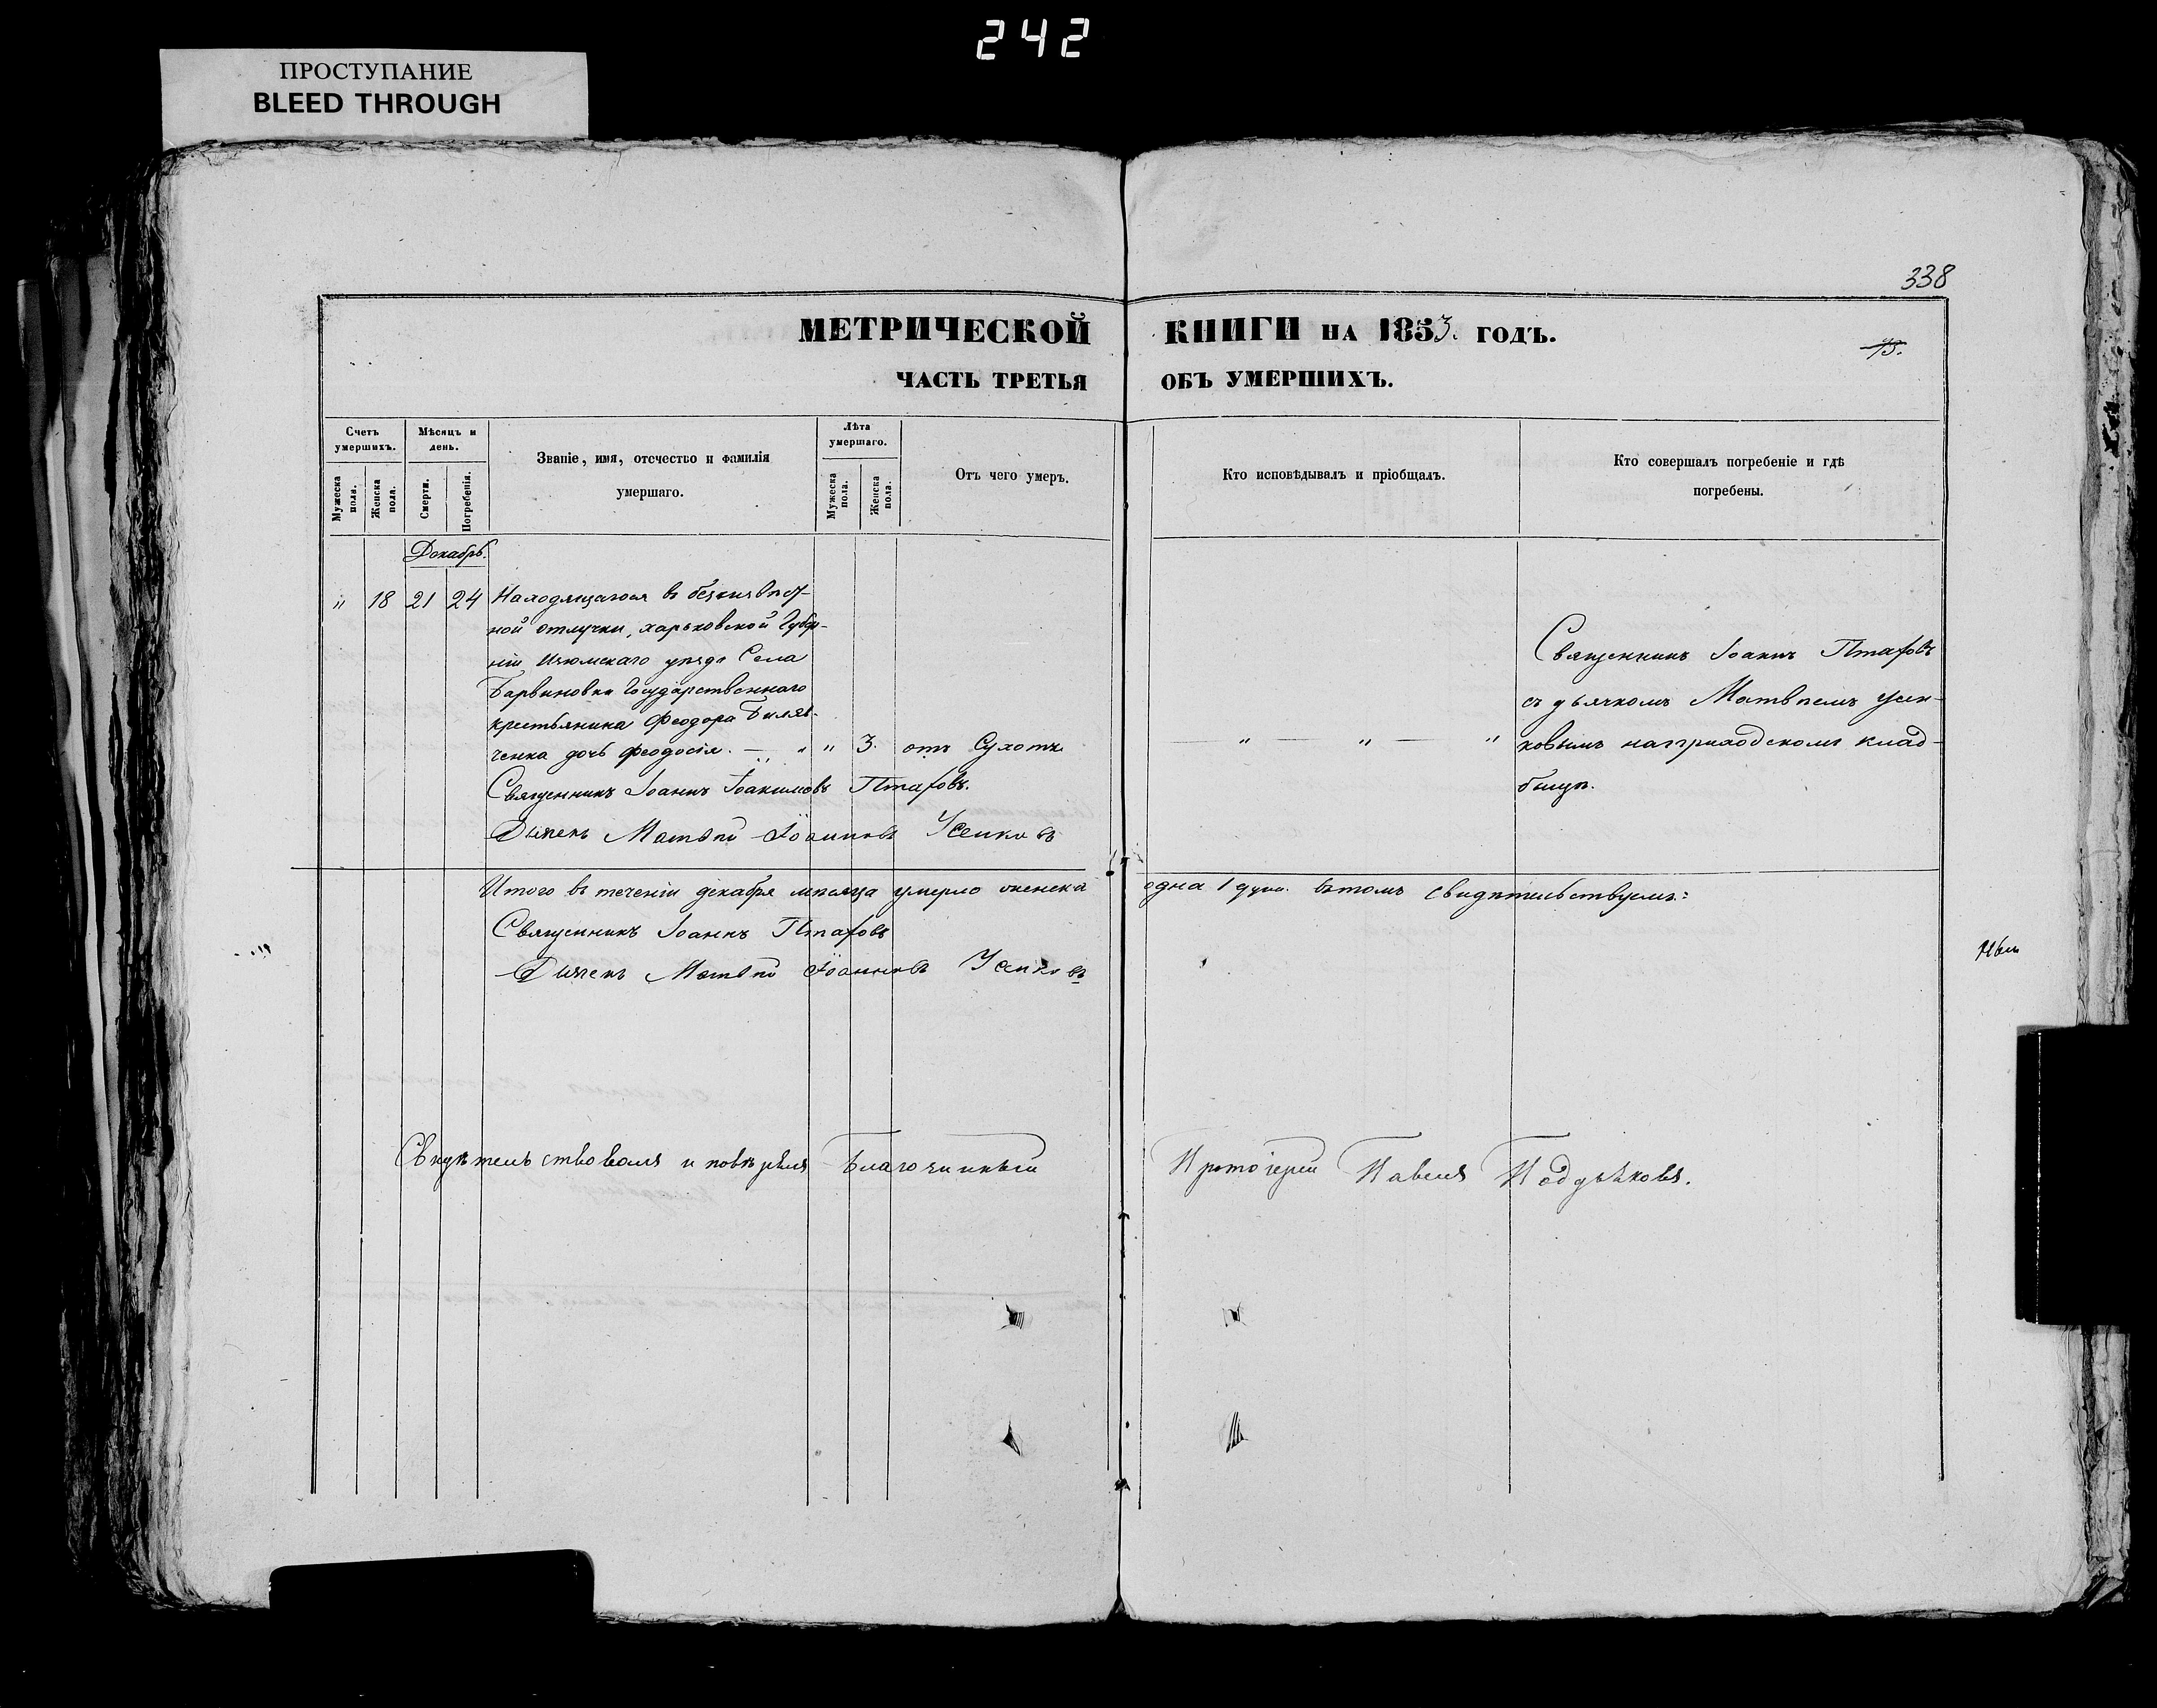 242
ПРОСТУПАНИЕ
BLEED THROUGH
338
МЕТРИЧЕСКОЙ КНИГИ НА 1853. ГОДЪ.
ЧАСТЬ ТРЕТЬЯ ОБЪ УМЕРШИХЪ.
Счетъ умершихъ.
Мужеска пола.
Женска пола.
Мѣсяцъ и день.
Смерти.
Погребенія.
Званіе, имя, отечество и фамилія
умершаго.
Лѣта умершаго.
Мужеска пола.
Женска пола.
Отъ чего умеръ.
Кто исповѣдывалъ и пріобщалъ.
Кто совершалъ погребеніе и гдѣ
погребены.
Декабрь.
" 18 21 24 Находящагося въ безъизвѣст-
ной отлучки, харьковской Губер-
ніи Изюмскаго уѣзда Села
Барвиновки Государственнаго
крестьянина Феодора Биляв-
ченка дочь Феодосія. — " " 3. отъ Сухотъ.
— " — " — "
Священникъ Іоаннъ Птаховъ
съ дьячкомъ Матвѣемъ Усен-
ковымъ на приходскомъ клад-
бищѣ.
Священникъ Іоаннъ Іоакимовъ Птаховъ.
Дьячекъ Матвѣй Іоанновъ Усенковъ
Итого въ теченіи декабря мѣсяца умерло женска одна 1 душа. въ томъ свидѣтельствуемъ:
Священникъ Іоаннъ Птаховъ
Дьячекъ Матвѣй Іоанновъ Усенковъ
Свидѣтельствовалъ и повѣрялъ Благочинный Протоіерей Павелъ